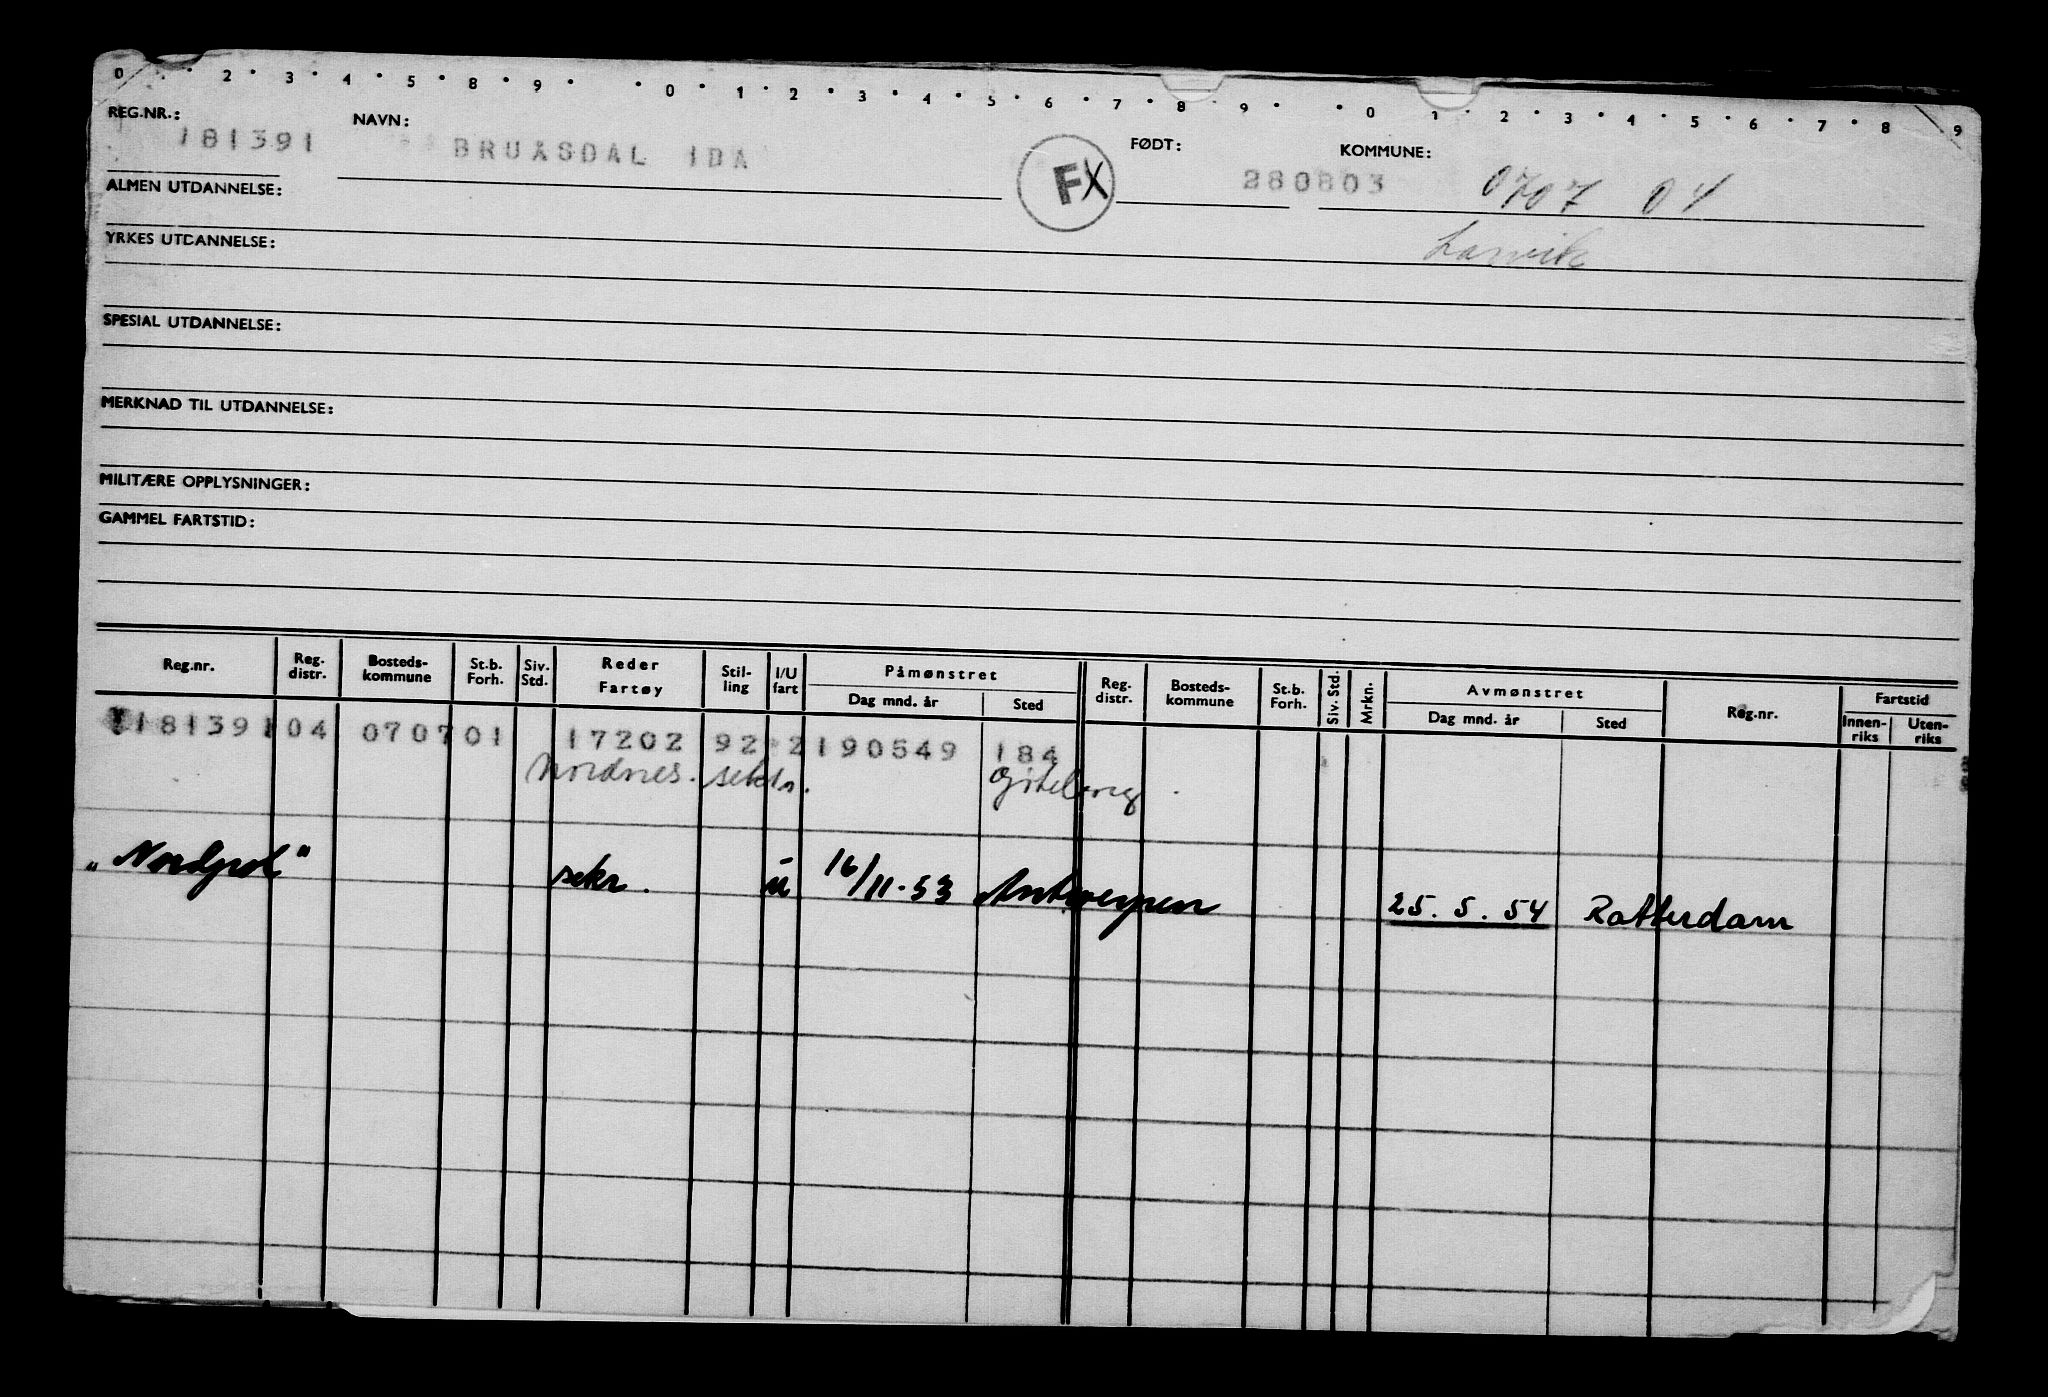 0 2 3 4 5 8 9 0 1 2 3 4 5 6 7 8 9 0 1 2 3 4 5 6 7 8 9
REG.NR.: 181391 NAVN: BRUÅSDAL IDA FX FØDT: 280803 KOMMUNE: 0707 04
ALMEN UTDANNELSE:
Larvik
YRKES UTDANNELSE:
SPESIAL UTDANNELSE:
MERKNAD TIL UTDANNELSE:
MILITÆRE OPPLYSNINGER:
GAMMEL FARTSTID:
Reg.nr. Reg. distr. Bosteds-kommune St.b. Forh. Siv. Std. Reder Fartøy Stil-ling I/U fart Påmønstret Dag mnd. år Sted Reg. distr. Bosteds-kommune St.b. Forh. Siv. Std. Mrkn. Avmønstret Dag mnd. år Sted Reg.nr. Fartstid Innen-riks Uten-riks
181391 04 0707 01 17202 92 2 190549 184
Nordnes. sekr. Gøteborg.
"Nordpol" sekr. u 16/11-53 Antwerpen 25.5.54 Rotterdam